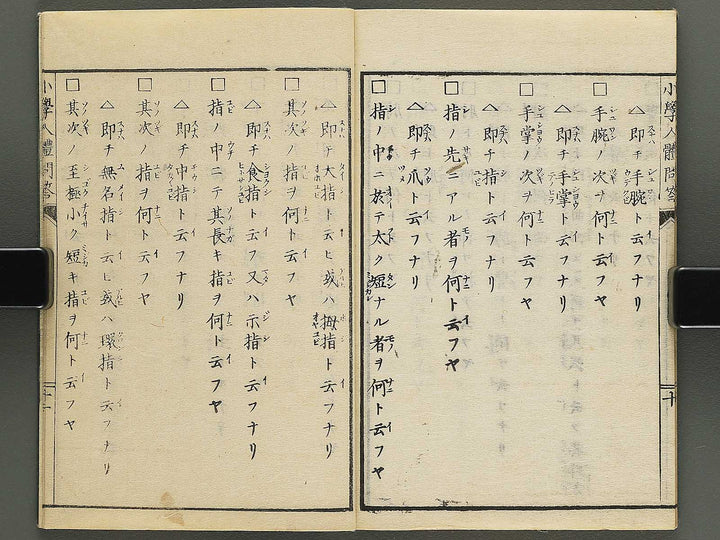 小學人體問答
十
△即チ手腕ト云フナリ
□手腕ノ次ヲ何ト云フヤ
△即チ手掌ト云フナリ
□手掌ノ次ヲ何ト云フヤ
△即チ指ト云フナリ
□指ノ先ニアル者ヲ何ト云フヤ
△即チ爪ト云フナリ
□指ノ中ニ於テ太ク短ナル者ヲ何ト云フヤ
△即チ大指ト云ヒ或ハ拇指ト云フナリ
□其次ノ指ヲ何ト云フヤ
△即チ食指ト云フ又ハ示指ト云フナリ
□指ノ中ニテ其長キ指ヲ何ト云フヤ
△即チ中指ト云フナリ
□其次ノ指ヲ何ト云フヤ
△即チ無名指ト云ヒ或ハ環指ト云フナリ
□其次ノ至極小ク短キ指ヲ何ト云フヤ
小學人體問答
十一